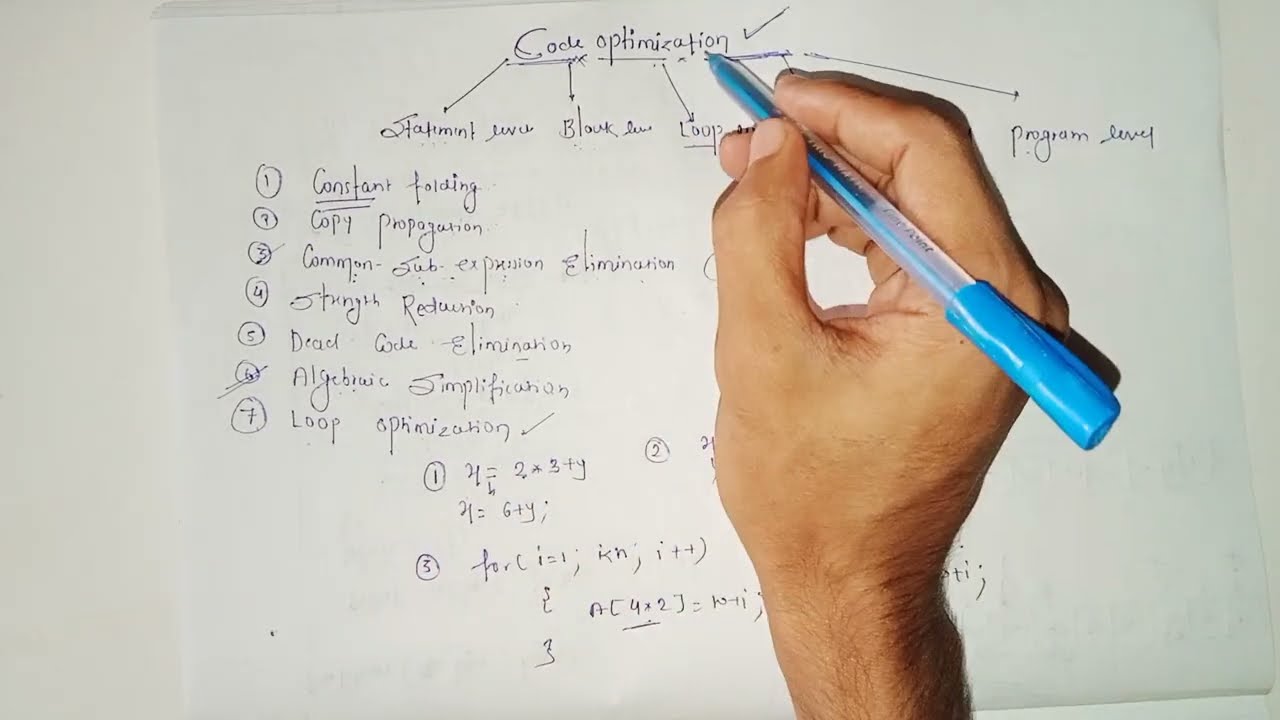 Code optimization
Statment level Block level Loop program level
① Constant folding
② Copy propagation
③ Common-Sub-expression Elimination (
④ Strength Reduction
⑤ Dead Code Elimination
⑥ Algebraic Simplification
⑦ Loop optimization
① x= 2*3+y ② x
x= 6+y;
③ for(i=1; i<n; i++)
{ A[4*2]= +i; +i;
}